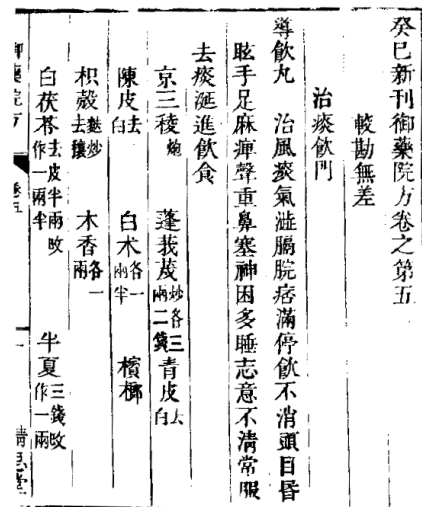 癸巳新刊御藥院方卷之第五
較勘無差
治痰飲門
導飲丸　治風痰氣澁膈脘痞滿停飲不消頭目昏
眩手足麻痺聲重鼻塞神困多睡志意不淸常服
去痰涎進飲食
京三稜炮　蓬莪茂炒各三兩二錢　靑皮去白
陳皮去白　白术各一兩半　檳榔
枳殼去穰麩炒　木香各一兩
白茯苓去皮半兩改作一兩半　半夏三錢改作一兩
御藥院方　卷五　一　精思堂